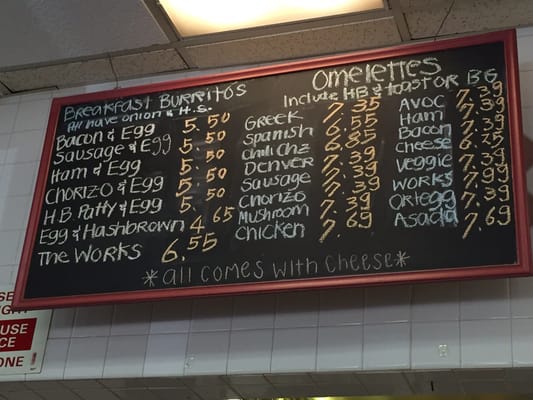 Breakfast Burrito's
All have onion & H.S.
Bacon & Egg 5.50
Sausage & Egg 5.50
Ham & Egg 5.50
Chorizo & Egg 5.50
H.B. Patty & Egg 5.50
Egg & Hashbrown 4.65
The Works 6.55
Omelettes
Include HB & Toast or BG
Greek 7.35
Spanish 6.55
Chili Chz 6.85
Denver 7.39
Sausage 7.39
Chorizo 7.39
Mushroom 7.39
Chicken 7.69
Avoc 7.39
Ham 7.39
Bacon 7.39
Cheese 6.25
Veggie 7.39
Works 7.99
Ortega 7.39
Asada 7.69
*all comes with cheese*
USE
CE
ONE